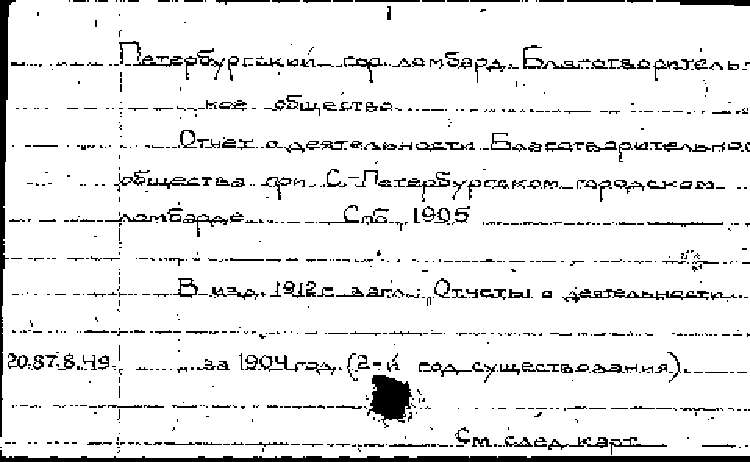 Петербургский гор. ломбард. Благотворитель-
ное общество.
Отчет о деятельности Благотворительно
общества при С.-Петербургском городском
ломбарде. Спб, 1905
В изд. 1912 г загл.: Отчеты о деятельности
20.87.8.49. за 1904 год. (2-й год существования).
См. след. карт.